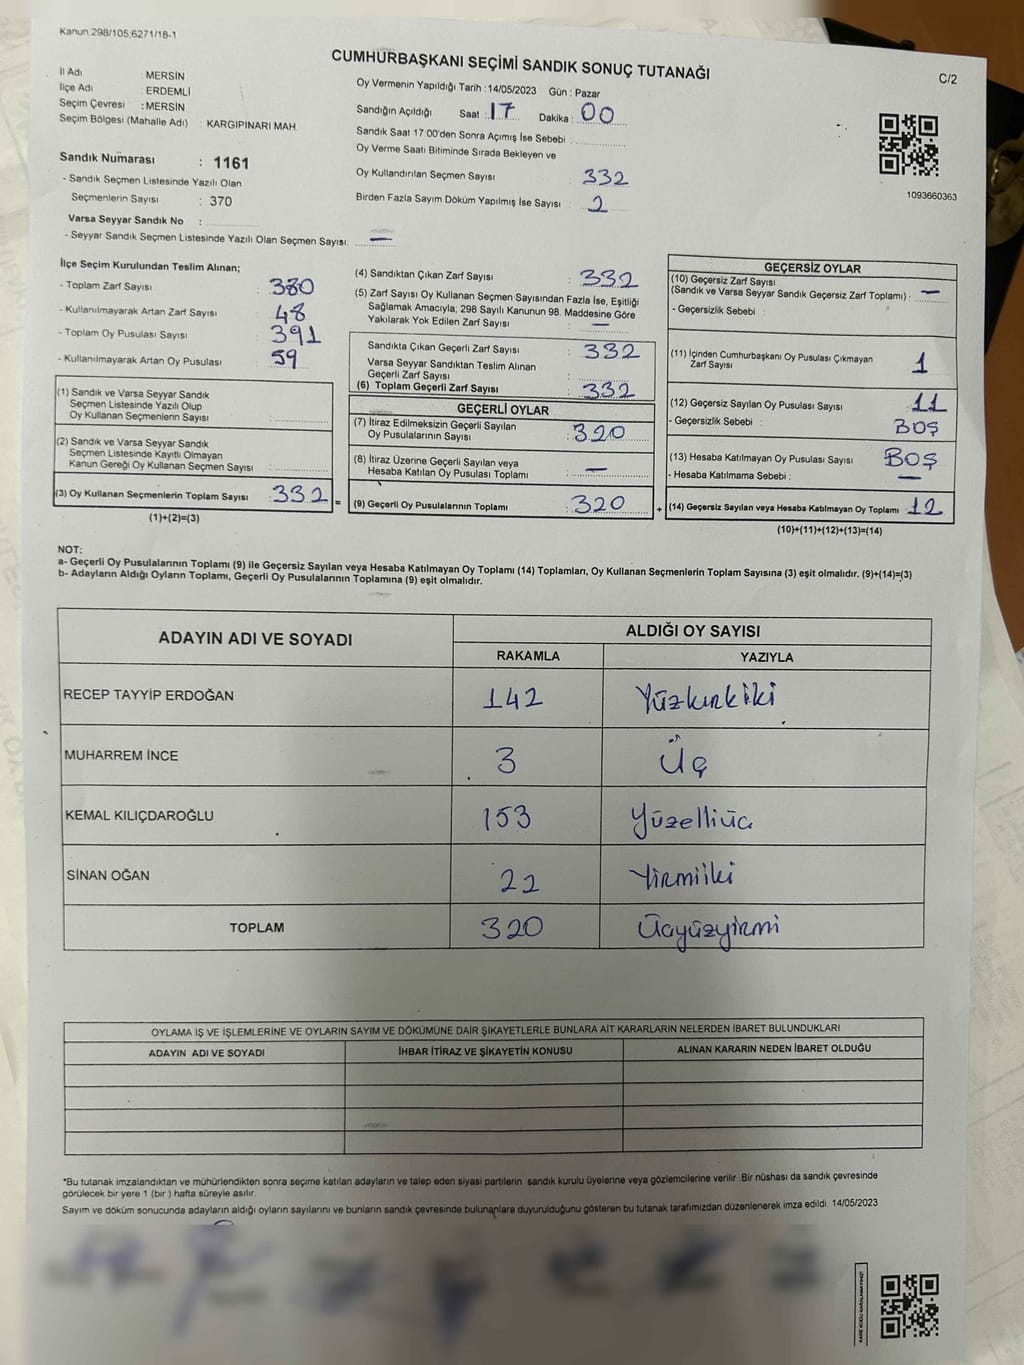 Kanun:298/105;6271/18-1
CUMHURBAŞKANI SEÇİMİ SANDIK SONUÇ TUTANAĞI
C/2
İl Adı : MERSİN
İlçe Adı : ERDEMLİ
Seçim Çevresi : MERSİN
Seçim Bölgesi (Mahalle Adı) : KARGIPINARI MAH.
Oy Vermenin Yapıldığı Tarih :14/05/2023 Gün : Pazar
Sandığın Açıldığı Saat : 17 Dakika : 00
Sandık Saat 17:00'den Sonra Açımış İse Sebebi :
Oy Verme Saati Bitiminde Sırada Bekleyen ve
Oy Kullandırılan Seçmen Sayısı : 332
Birden Fazla Sayım Döküm Yapılmış İse Sayısı : 2
1093660363
Sandık Numarası : 1161
- Sandık Seçmen Listesinde Yazılı Olan
Seçmenlerin Sayısı : 370
Varsa Seyyar Sandık No :
- Seyyar Sandık Seçmen Listesinde Yazılı Olan Seçmen Sayısı: —
İlçe Seçim Kurulundan Teslim Alınan;
- Toplam Zarf Sayısı : 380
- Kullanılmayarak Artan Zarf Sayısı : 48
- Toplam Oy Pusulası Sayısı : 391
- Kullanılmayarak Artan Oy Pusulası : 59
(1) Sandık ve Varsa Seyyar Sandık
Seçmen Listesinde Yazılı Olup
Oy Kullanan Seçmenlerin Sayısı :
(2) Sandık ve Varsa Seyyar Sandık
Seçmen Listesinde Kayıtlı Olmayan
Kanun Gereği Oy Kullanan Seçmen Sayısı :
(3) Oy Kullanan Seçmenlerin Toplam Sayısı : 332 =
(1)+(2)=(3)
(4) Sandıktan Çıkan Zarf Sayısı : 332
(5) Zarf Sayısı Oy Kullanan Seçmen Sayısından Fazla İse, Eşitliği
Sağlamak Amacıyla; 298 Sayılı Kanunun 98. Maddesine Göre
Yakılarak Yok Edilen Zarf Sayısı : —
Sandıkta Çıkan Geçerli Zarf Sayısı : 332
Varsa Seyyar Sandıktan Teslim Alınan
Geçerli Zarf Sayısı :
(6) Toplam Geçerli Zarf Sayısı : 332
GEÇERLİ OYLAR
(7) İtiraz Edilmeksizin Geçerli Sayılan
Oy Pusulalarının Sayısı : 320
(8) İtiraz Üzerine Geçerli Sayılan veya
Hesaba Katılan Oy Pusulası Toplamı : —
(9) Geçerli Oy Pusulalarının Toplamı : 320 +
GEÇERSİZ OYLAR
(10) Geçersiz Zarf Sayısı
(Sandık ve Varsa Seyyar Sandık Geçersiz Zarf Toplamı) : —
- Geçersizlik Sebebi :
(11) İçinden Cumhurbaşkanı Oy Pusulası Çıkmayan
Zarf Sayısı : 1
(12) Geçersiz Sayılan Oy Pusulası Sayısı : 11
- Geçersizlik Sebebi : BOŞ
(13) Hesaba Katılmayan Oy Pusulası Sayısı : BOŞ
- Hesaba Katılmama Sebebi : —
(14) Geçersiz Sayılan veya Hesaba Katılmayan Oy Toplamı : 12
(10)+(11)+(12)+(13)=(14)
NOT:
a- Geçerli Oy Pusulalarının Toplamı (9) ile Geçersiz Sayılan veya Hesaba Katılmayan Oy Toplamı (14) Toplamları, Oy Kullanan Seçmenlerin Toplam Sayısına (3) eşit olmalıdır. (9)+(14)=(3)
b- Adayların Aldığı Oyların Toplamı, Geçerli Oy Pusulalarının Toplamına (9) eşit olmalıdır.
ADAYIN ADI VE SOYADI
ALDIĞI OY SAYISI
RAKAMLA YAZIYLA
RECEP TAYYİP ERDOĞAN 142 Yüzkırkiki
MUHARREM İNCE 3 Üç
KEMAL KILIÇDAROĞLU 153 Yüzelliüç
SİNAN OĞAN 22 Yirmiiki
TOPLAM 320 Üçyüzyirmi
OYLAMA İŞ VE İŞLEMLERİNE VE OYLARIN SAYIM VE DÖKÜMÜNE DAİR ŞİKAYETLERLE BUNLARA AİT KARARLARIN NELERDEN İBARET BULUNDUKLARI
ADAYIN ADI VE SOYADI İHBAR İTİRAZ VE ŞİKAYETİN KONUSU ALINAN KARARIN NEDEN İBARET OLDUĞU
*Bu tutanak imzalandıktan ve mühürlendikten sonra seçime katılan adayların ve talep eden siyasi partilerin sandık kurulu üyelerine veya gözlemcilerine verilir. Bir nüshası da sandık çevresinde
görülecek bir yere 1 (bir ) hafta süreyle asılır.
Sayım ve döküm sonucunda adayların aldığı oyların sayılarını ve bunların sandık çevresinde bulunanlara duyurulduğunu gösteren bu tutanak tarafımızdan düzenlenerek imza edildi. 14/05/2023